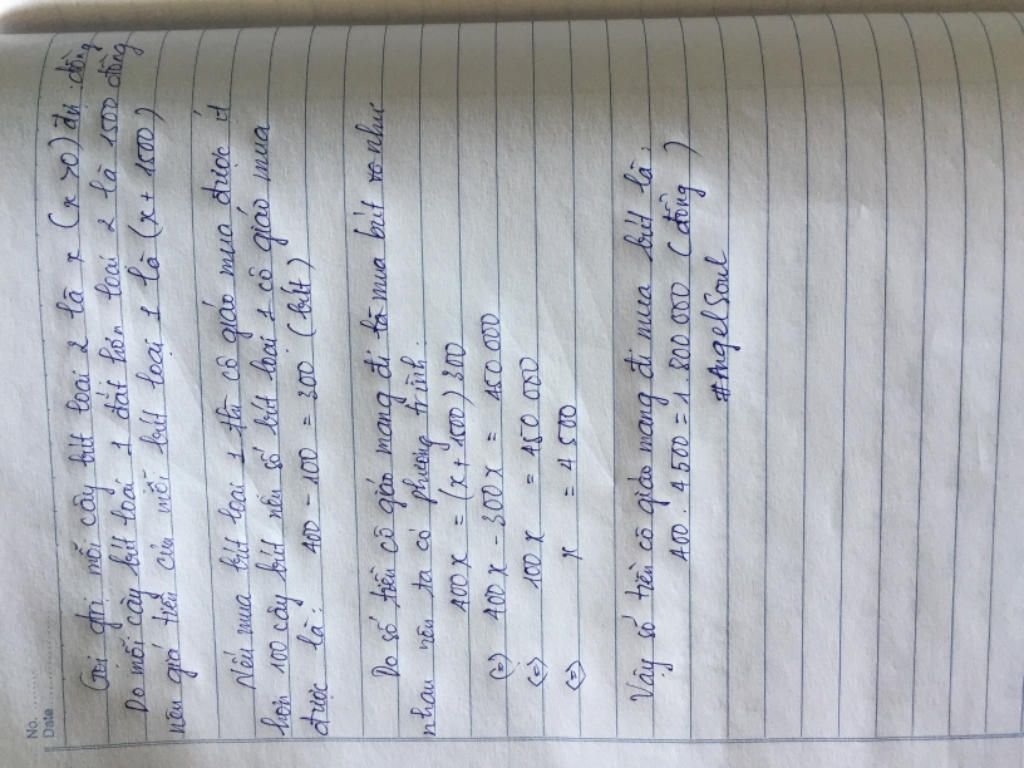 No. ............
Date ............
Gọi giá mỗi cây bút loại 2 là x (x >0) đv: đồng
Do mỗi cây bút loại 1 đắt hơn loại 2 là 1500 đồng
nên giá tiền của mỗi bút loại 1 là (x + 1500)
Nếu mua bút loại 1 thì cô giáo mua được ít
hơn 100 cây bút nên số bút loại 1 cô giáo mua
được là: 400 - 100 = 300 (bút)
Do số tiền cô giáo mang đi mua bút như
nhau nên ta có phương trình:
400x = (x + 1500) 300
(=) 400x - 300x = 450 000
(=) 100x = 450 000
(=) x = 4 500
Vậy số tiền cô giáo mang đi mua bút là:
400 . 4500 = 1. 800 000 (đồng)
#AngelSoul